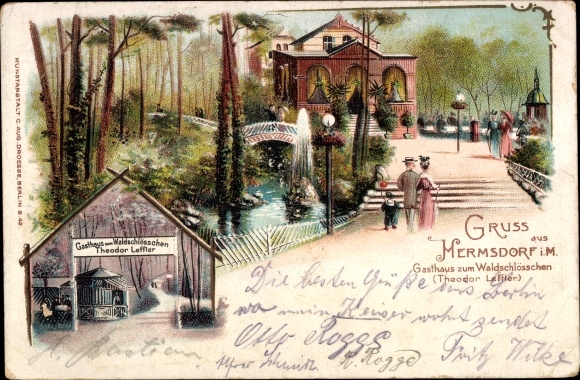 KUNSTANSTALT C. AUG. DROESSE, BERLIN S. 42
Gasthaus zum Waldschlösschen
Theodor Leffler
GRUSS
aus
HERMSDORF i.M.
Gasthaus zum Waldschlösschen
(Theodor Leffler)
Die besten Grüße aus Berlin
wo mein Kaiser wohnt sendet
Otto Rogge
Schmidt. R. Rogge Fritz Wilke